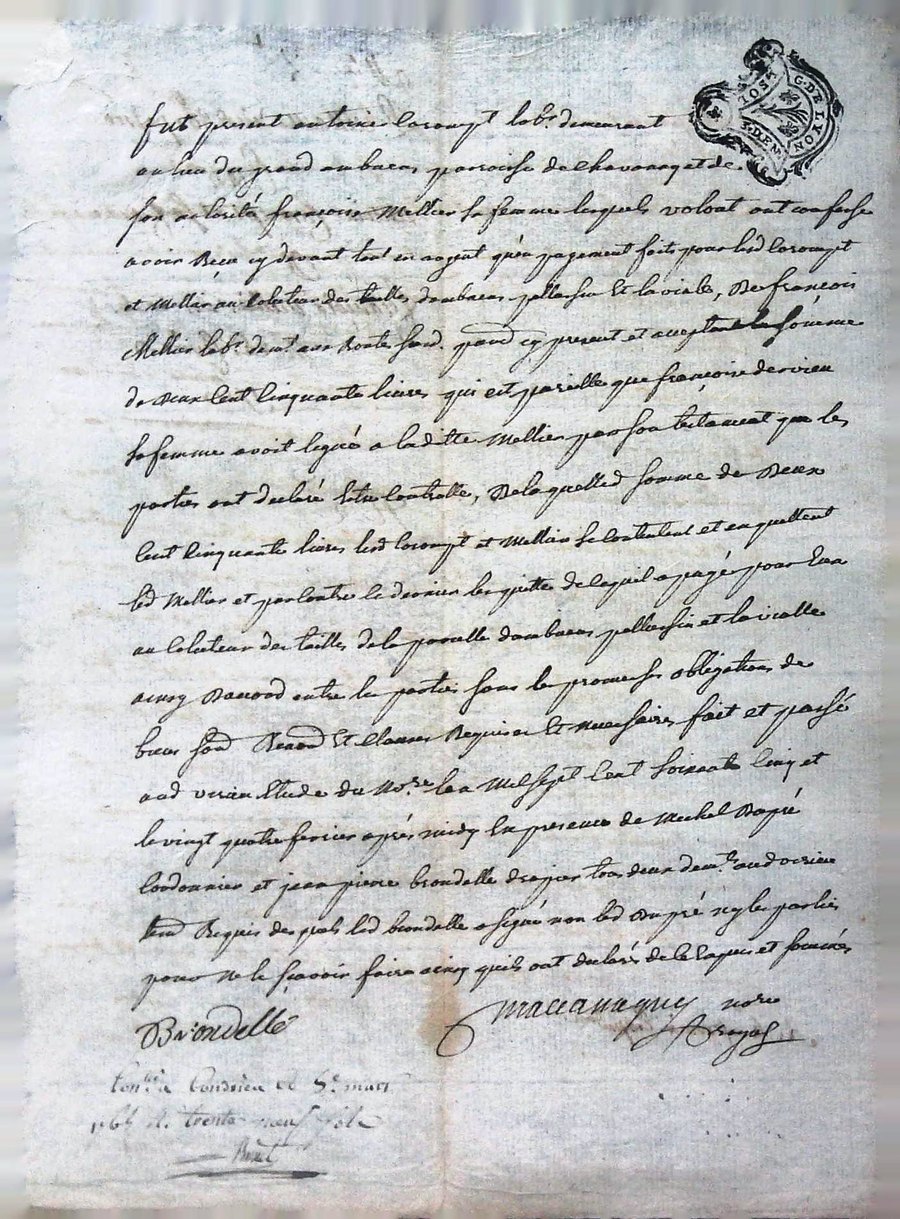 G. DE LYON
3. DEN.
fut present antoine Corompt lab.r demeurant
au lieu du grand ambacas parroisse de Chavanay et de
son autorité françoise Mellier sa femme lesquels volont ont confesse
avoir Receu cy devant tant en argent qu'en payement faits pour lesd Corompt
et Mellier au Colecteur des tailles dambacas pellassin Et la viale, De françois
Mellier lab.r dem.t aux cy present et acceptant la somme
de Deux Cent Cinquante livres qui est pareille que françoise dervieu
sa femme avoit legué a laditte Mellier par son testament que les
parties ont declaré Estre Controllé, De laquelled somme de Deux
Cent Cinquante livres lesd Corompt et Mellier se contentent et en quittent
led Mellier et par Contre le dernier les quitte de ce quil a payé pour Eux
au Colecteur des tailles de la parcelle dambacas pellassin et la vialle
ainsy Dacord entre les parties sous les promesses obligations de
biens soud Renond Et Clauses Requises Et necessaires fait et passé
aud verin Etude du No.re Lan Mil sept Cent Soixante Cinq et
le vingt quatre fevrier après midy En presence de Michel Dupré
Cordonnier et jean pierre brondelle drapier tous deux dem.t aud verin
Requis des quels led brondelle a signé non led Dupré ny les parties
pour ne le sçavoir faire ainsy quils ont declarés de ce Enquis et sommés
Brondelle
no.re
Royal
Con.llé à Condrieu le 5.e mars
1765 R. trente neuf sols